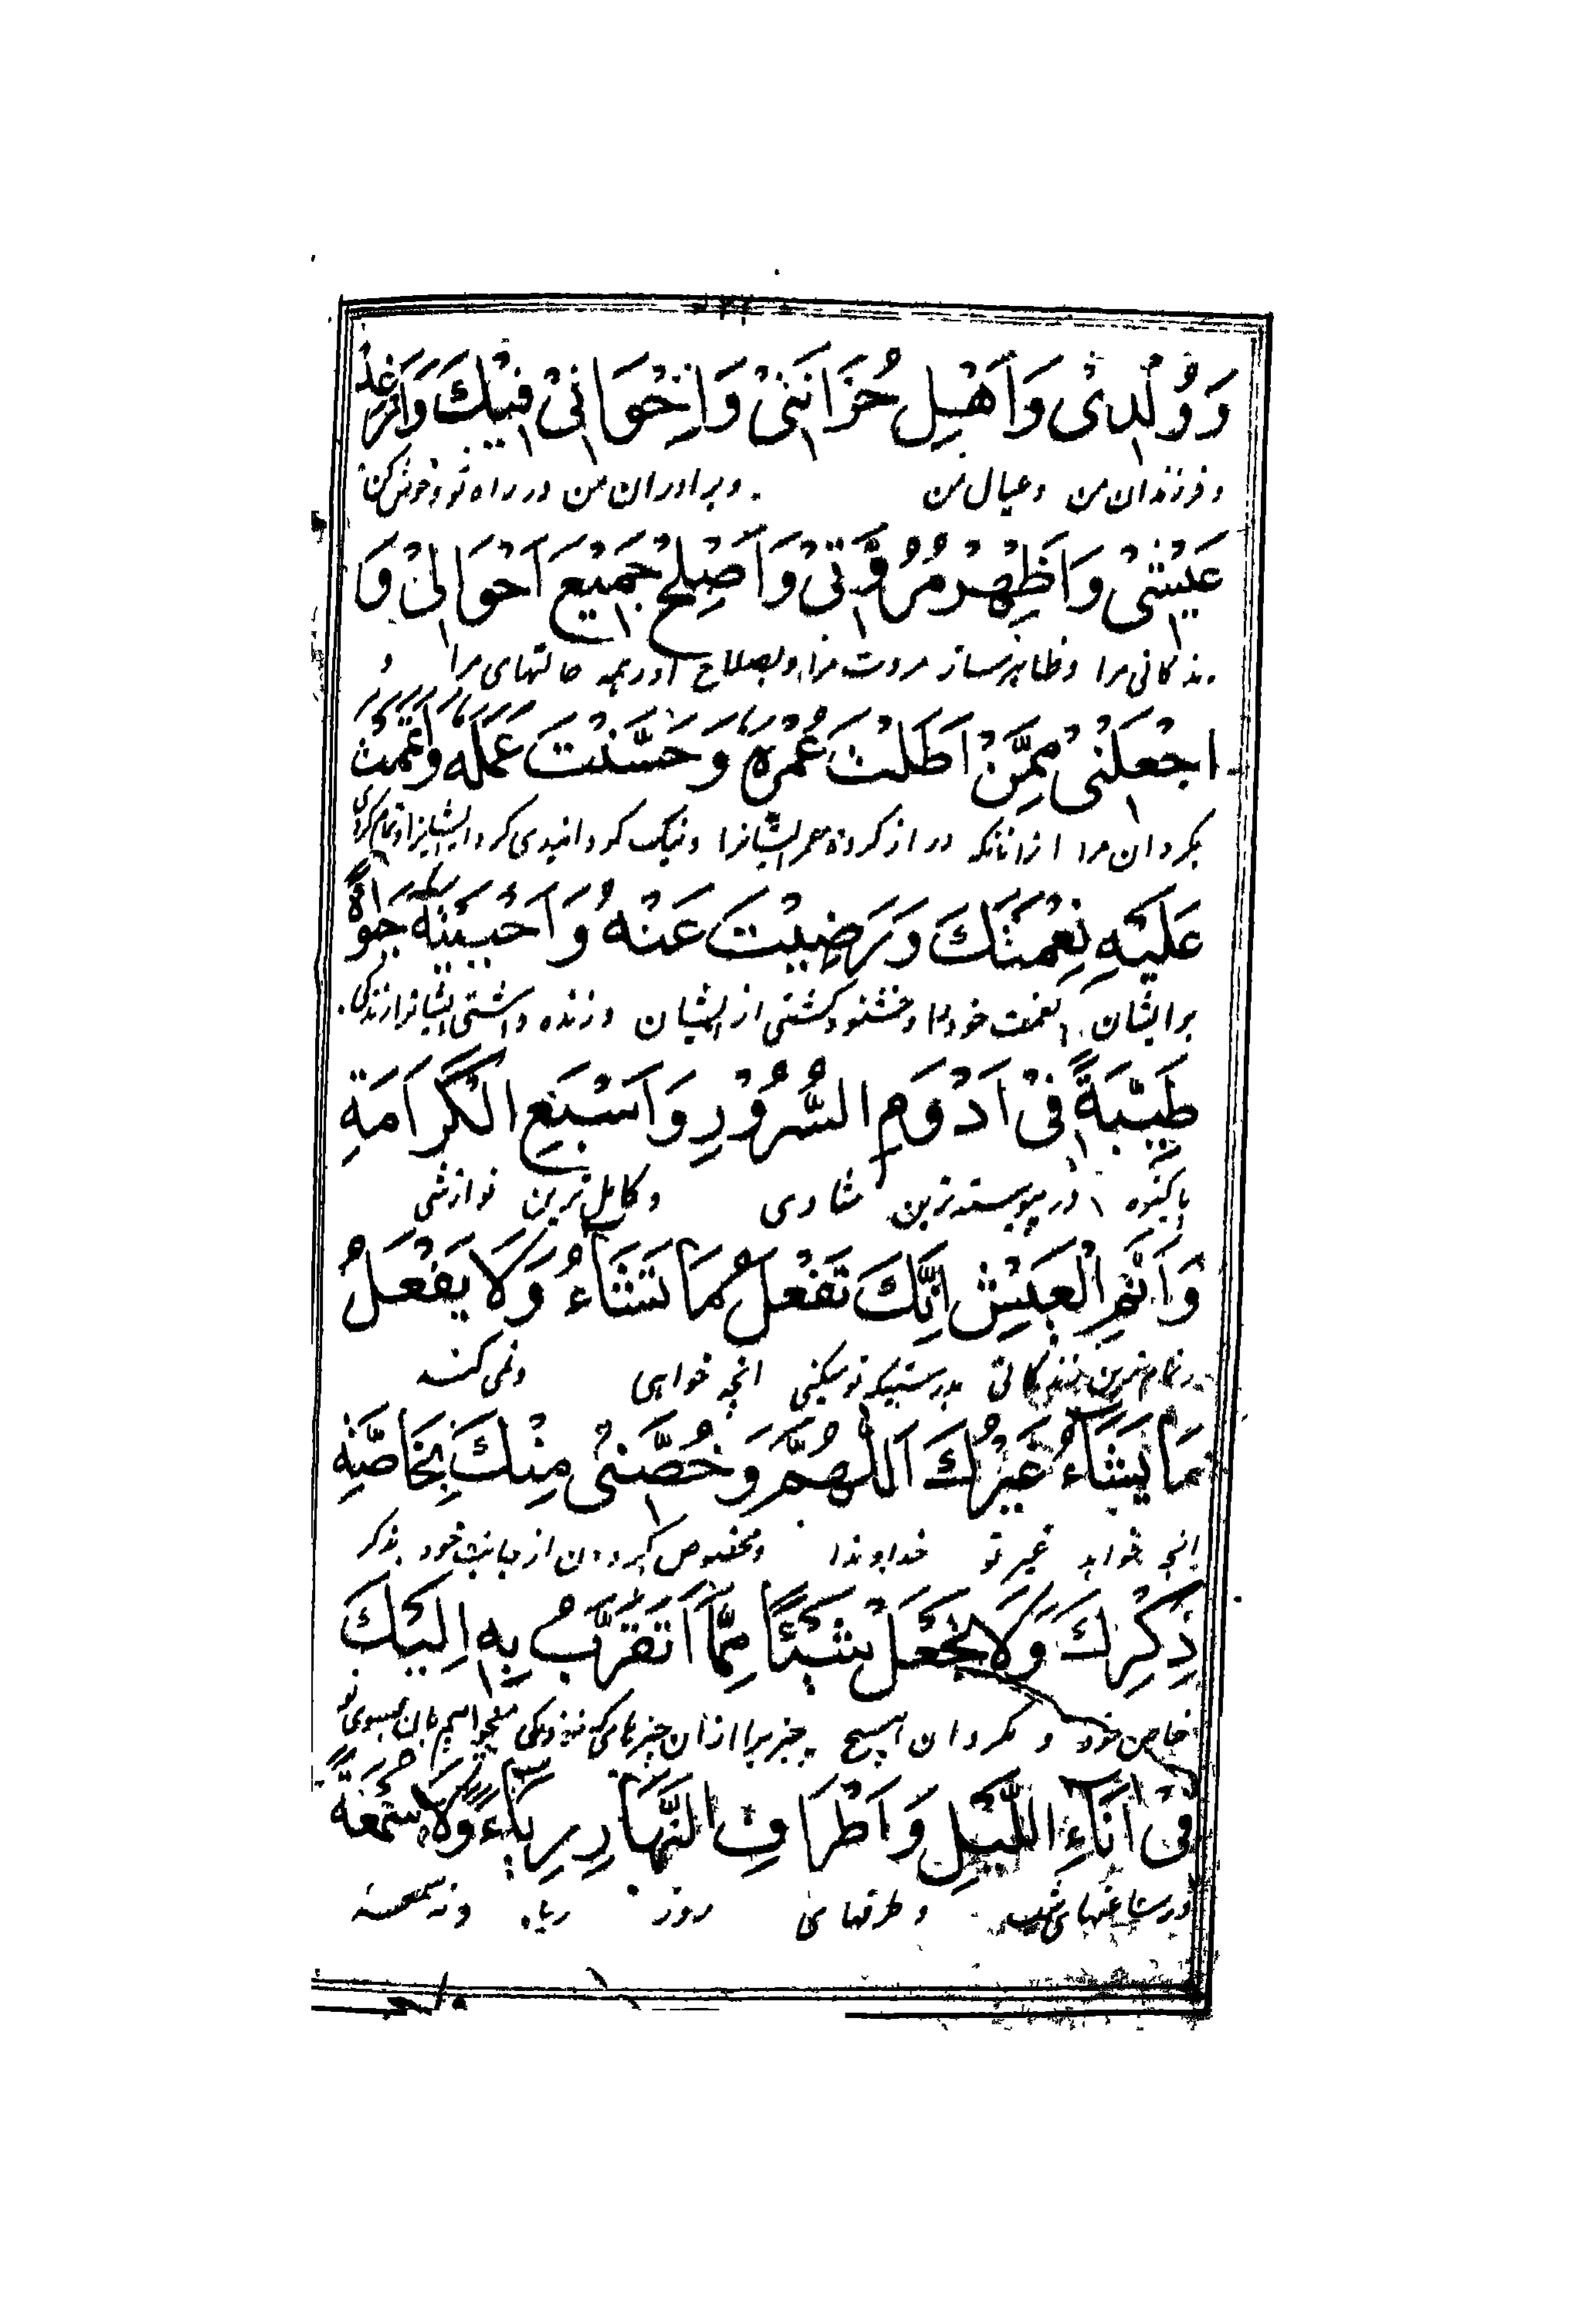 وَوُلْدِیْ وَاَهْلِ حُزَانَتِیْ وَاِخْوَانِیْ فِیْكَ وَاَرْغِدْ
و فرزندان من و عیال من و برادران من در راه تو و خوش کن
عَیْشِیْ وَاَظْهِرْ مُرُوَّتِیْ وَاَصْلِحْ جَمِیْعَ اَحْوَالِیْ وَ
زندکانی مرا و ظاهر ساز مروت مرا و بصلاح اور همه حالتهای مرا و
اجْعَلْنِیْ مِمَّنْ اَطَلْتَ عُمْرَهٗ وَحَسَّنْتَ عَمَلَهٗ وَاَتْمَمْتَ
بکردان مرا ازانانکه دراز کرده عمر ایشانرا و نیک کردانیدی کردار ایشانرا و تمام کردی
عَلَیْهِ نِعْمَتَكَ وَرَضِیْتَ عَنْهُ وَاَحْیَیْتَهٗ حَیٰوةً
بر ایشان نعمت خود را و خشنود کشتی از ایشان و زنده داشتی ایشانرا زندکی
طَیِّبَةً فِیْ اَدْوَمِ السُّرُوْرِ وَاَسْبَغِ الْكَرَامَةِ
پاکیزه در پیوسته ترین شادی و کامل ترین نوازشی
وَاَتَمِّ الْعَیْشِ اِنَّكَ تَفْعَلُ مَا تَشَاۤءُ وَلَا یَفْعَلُ
و تمام ترین زندکانی بدرستیکه تو میکنی انچه خواهی و نمی کند
مَا یَشَاۤءُ غَیْرُكَ اَللّٰهُمَّ وَخُصَّنِیْ مِنْكَ بِخَاصَّةِ
انچه خواهد غیر تو خداوندا و مخصوص کردان از جانب خود بذکر
ذِكْرِكَ وَلَا تَجْعَلْ شَیْئًا مِمَّا اَتَقَرَّبُ بِهٖ اِلَیْكَ
خاص خود و مکردان هیچ چیزیرا ازان چیزهاکه نزدیکی میجویم بان بسوی تو
فِیْ اٰنَاۤءِ اللَّیْلِ وَاَطْرَافِ النَّهَارِ رِیَاۤءً وَلَا سُمْعَةً
در ساعتهای شب و طرفهای روز ریاء و نه سمعه